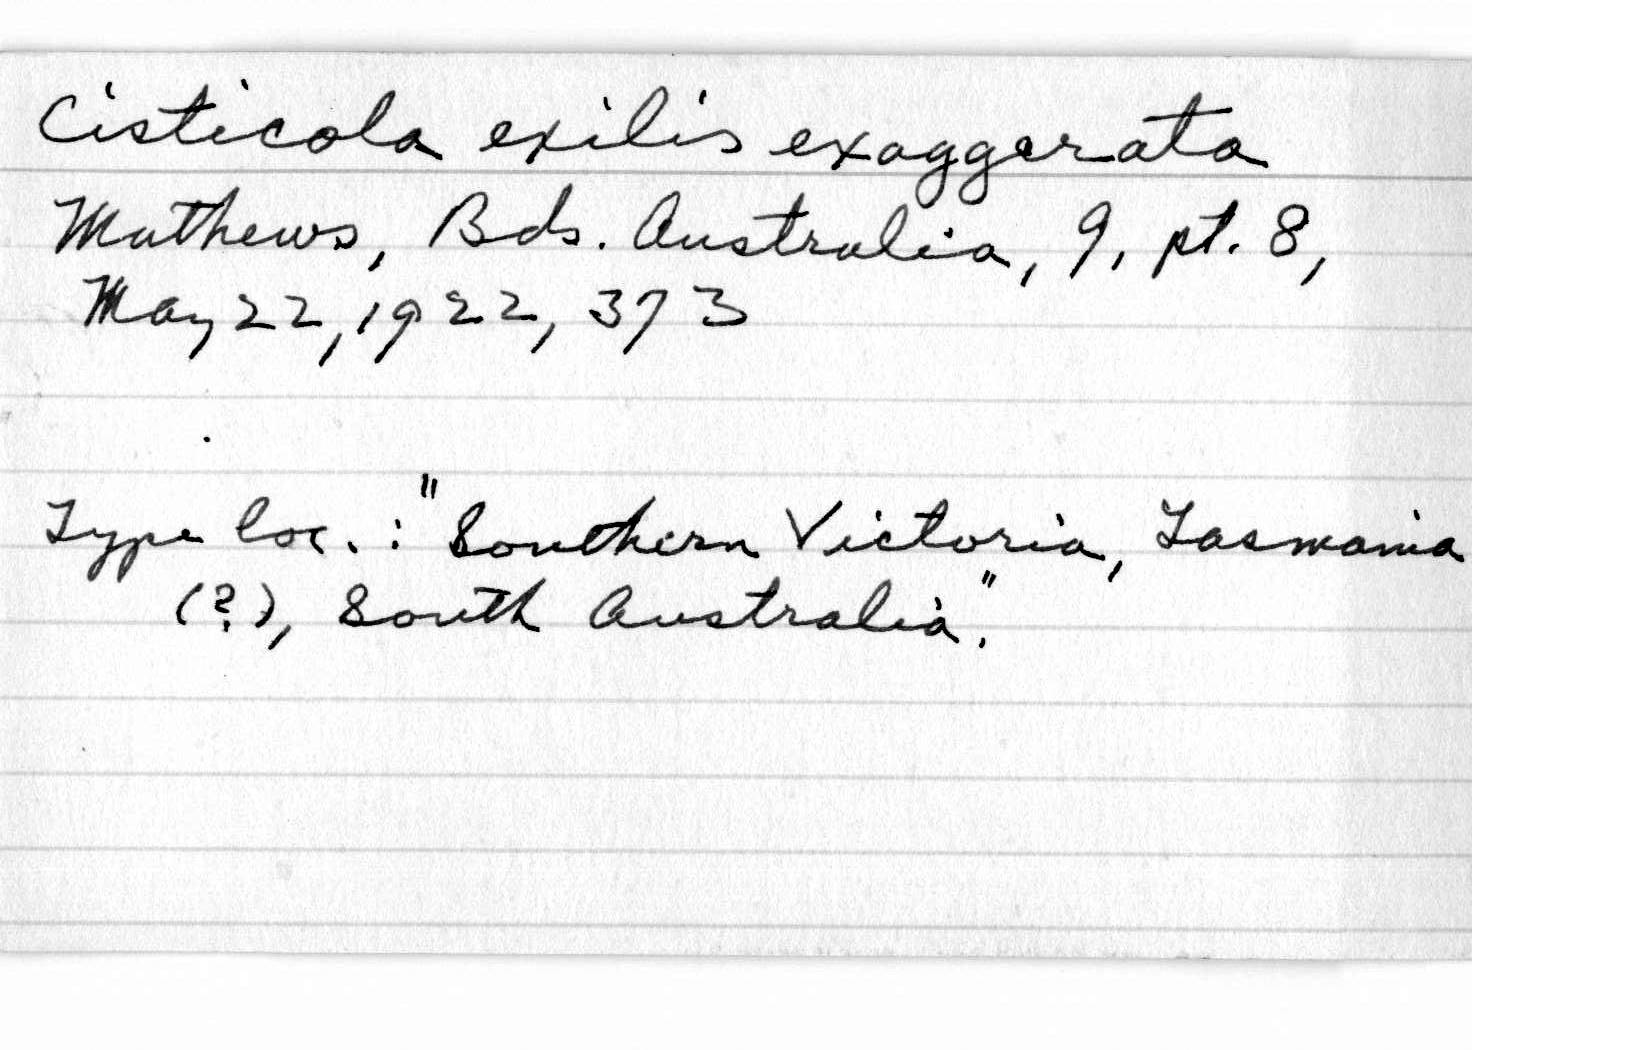 Cisticola exilis exaggerata
Mathews, Bds. Australia, 9, pt. 8,
May 22, 1922, 373
Type loc. : "Southern Victoria, Tasmania
(?), South Australia."